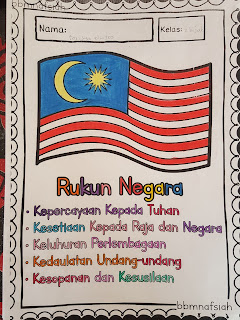 bbmnafsiah
Nama:
Kelas:
Rukun Negara
• Kepercayaan Kepada Tuhan
• Kesetiaan Kepada Raja dan Negara
• Keluhuran Perlembagaan
• Kedaulatan Undang-undang
• Kesopanan dan Kesusilaan
bbmnafsiah